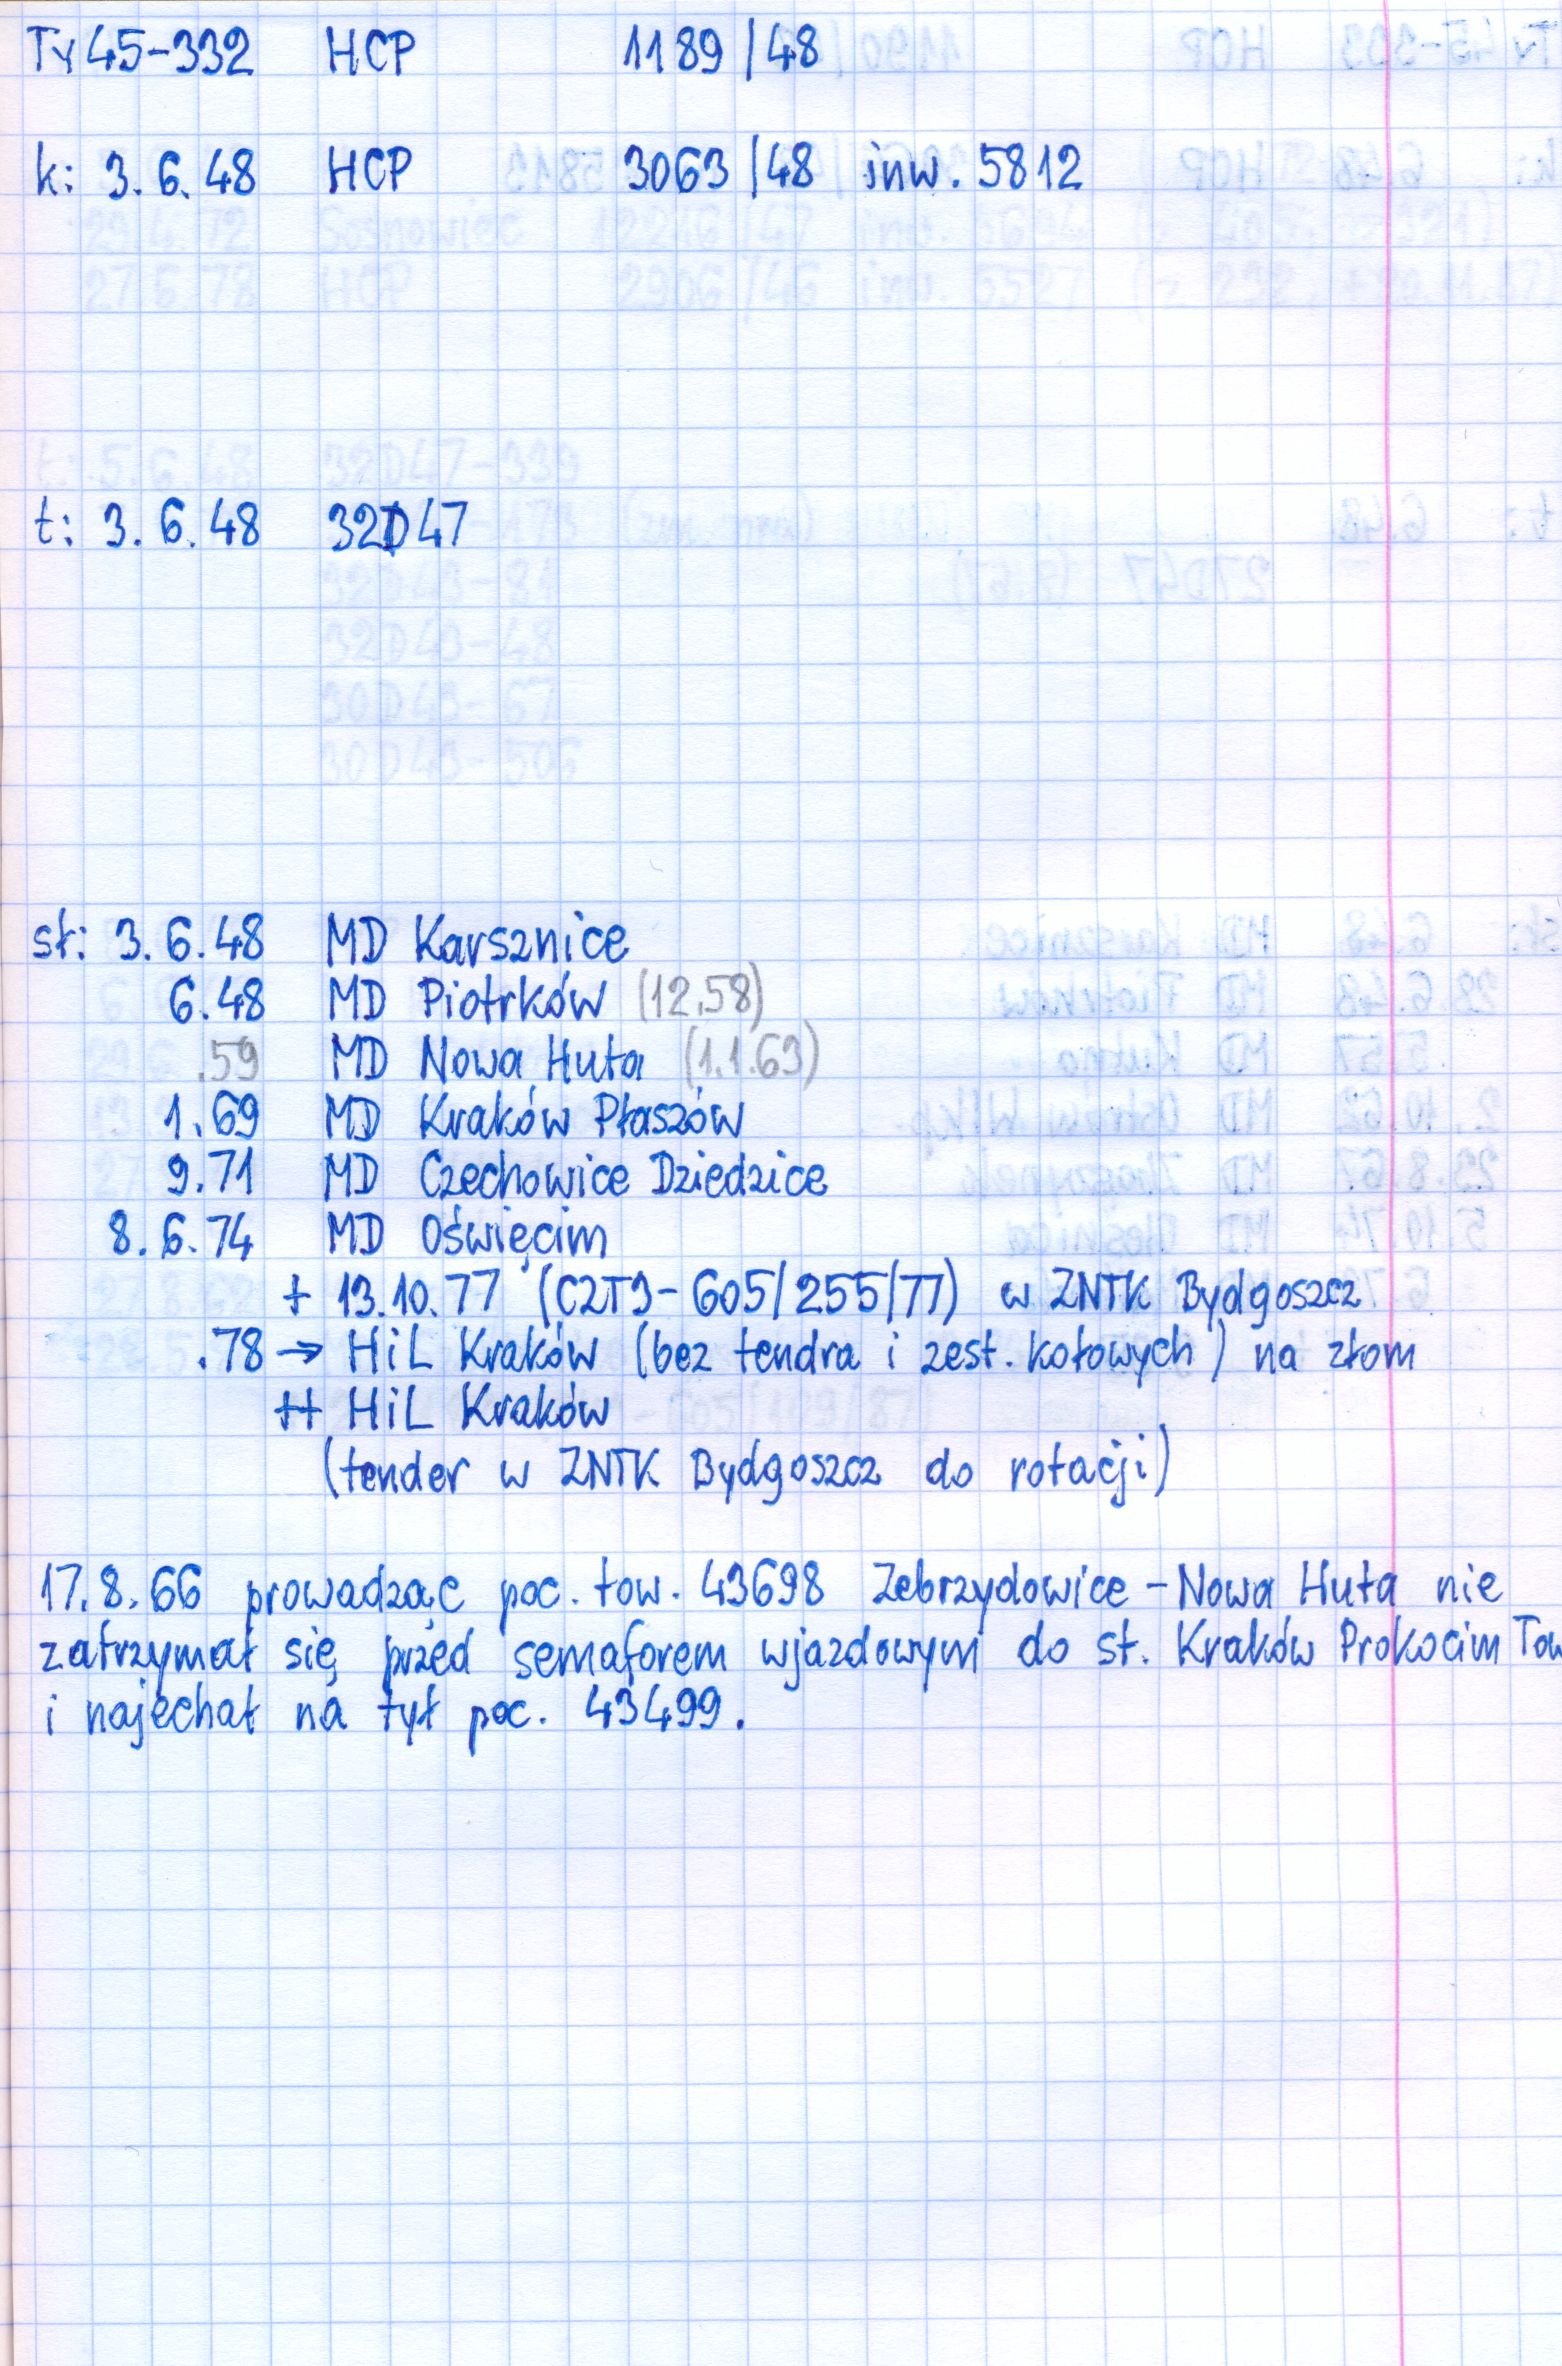 Ty45-332 HCP 1189/48
k: 3.6.48 HCP 3063/48 inw. 5812
t: 3.6.48 32D47
st: 3.6.48 MD Karsznice
6.48 MD Piotrków (12.58)
.59 MD Nowa Huta (1.1.63)
1.69 MD Kraków Płaszów
9.71 MD Czechowice Dziedzice
8.6.74 MD Oświęcim
+ 13.10.77 (CZT3-605/255/77) w ZNTK Bydgoszcz
.78 → HiL Kraków (bez tendra i zest. kołowych) na złom
++ HiL Kraków
(tender w ZNTK Bydgoszcz do rotacji)
17.8.66 prowadząc poc. tow. 43698 Zebrzydowice - Nowa Huta nie
zatrzymał się przed semaforem wjazdowym do st. Kraków Prokocim Tow
i najechał na tył poc. 43499.